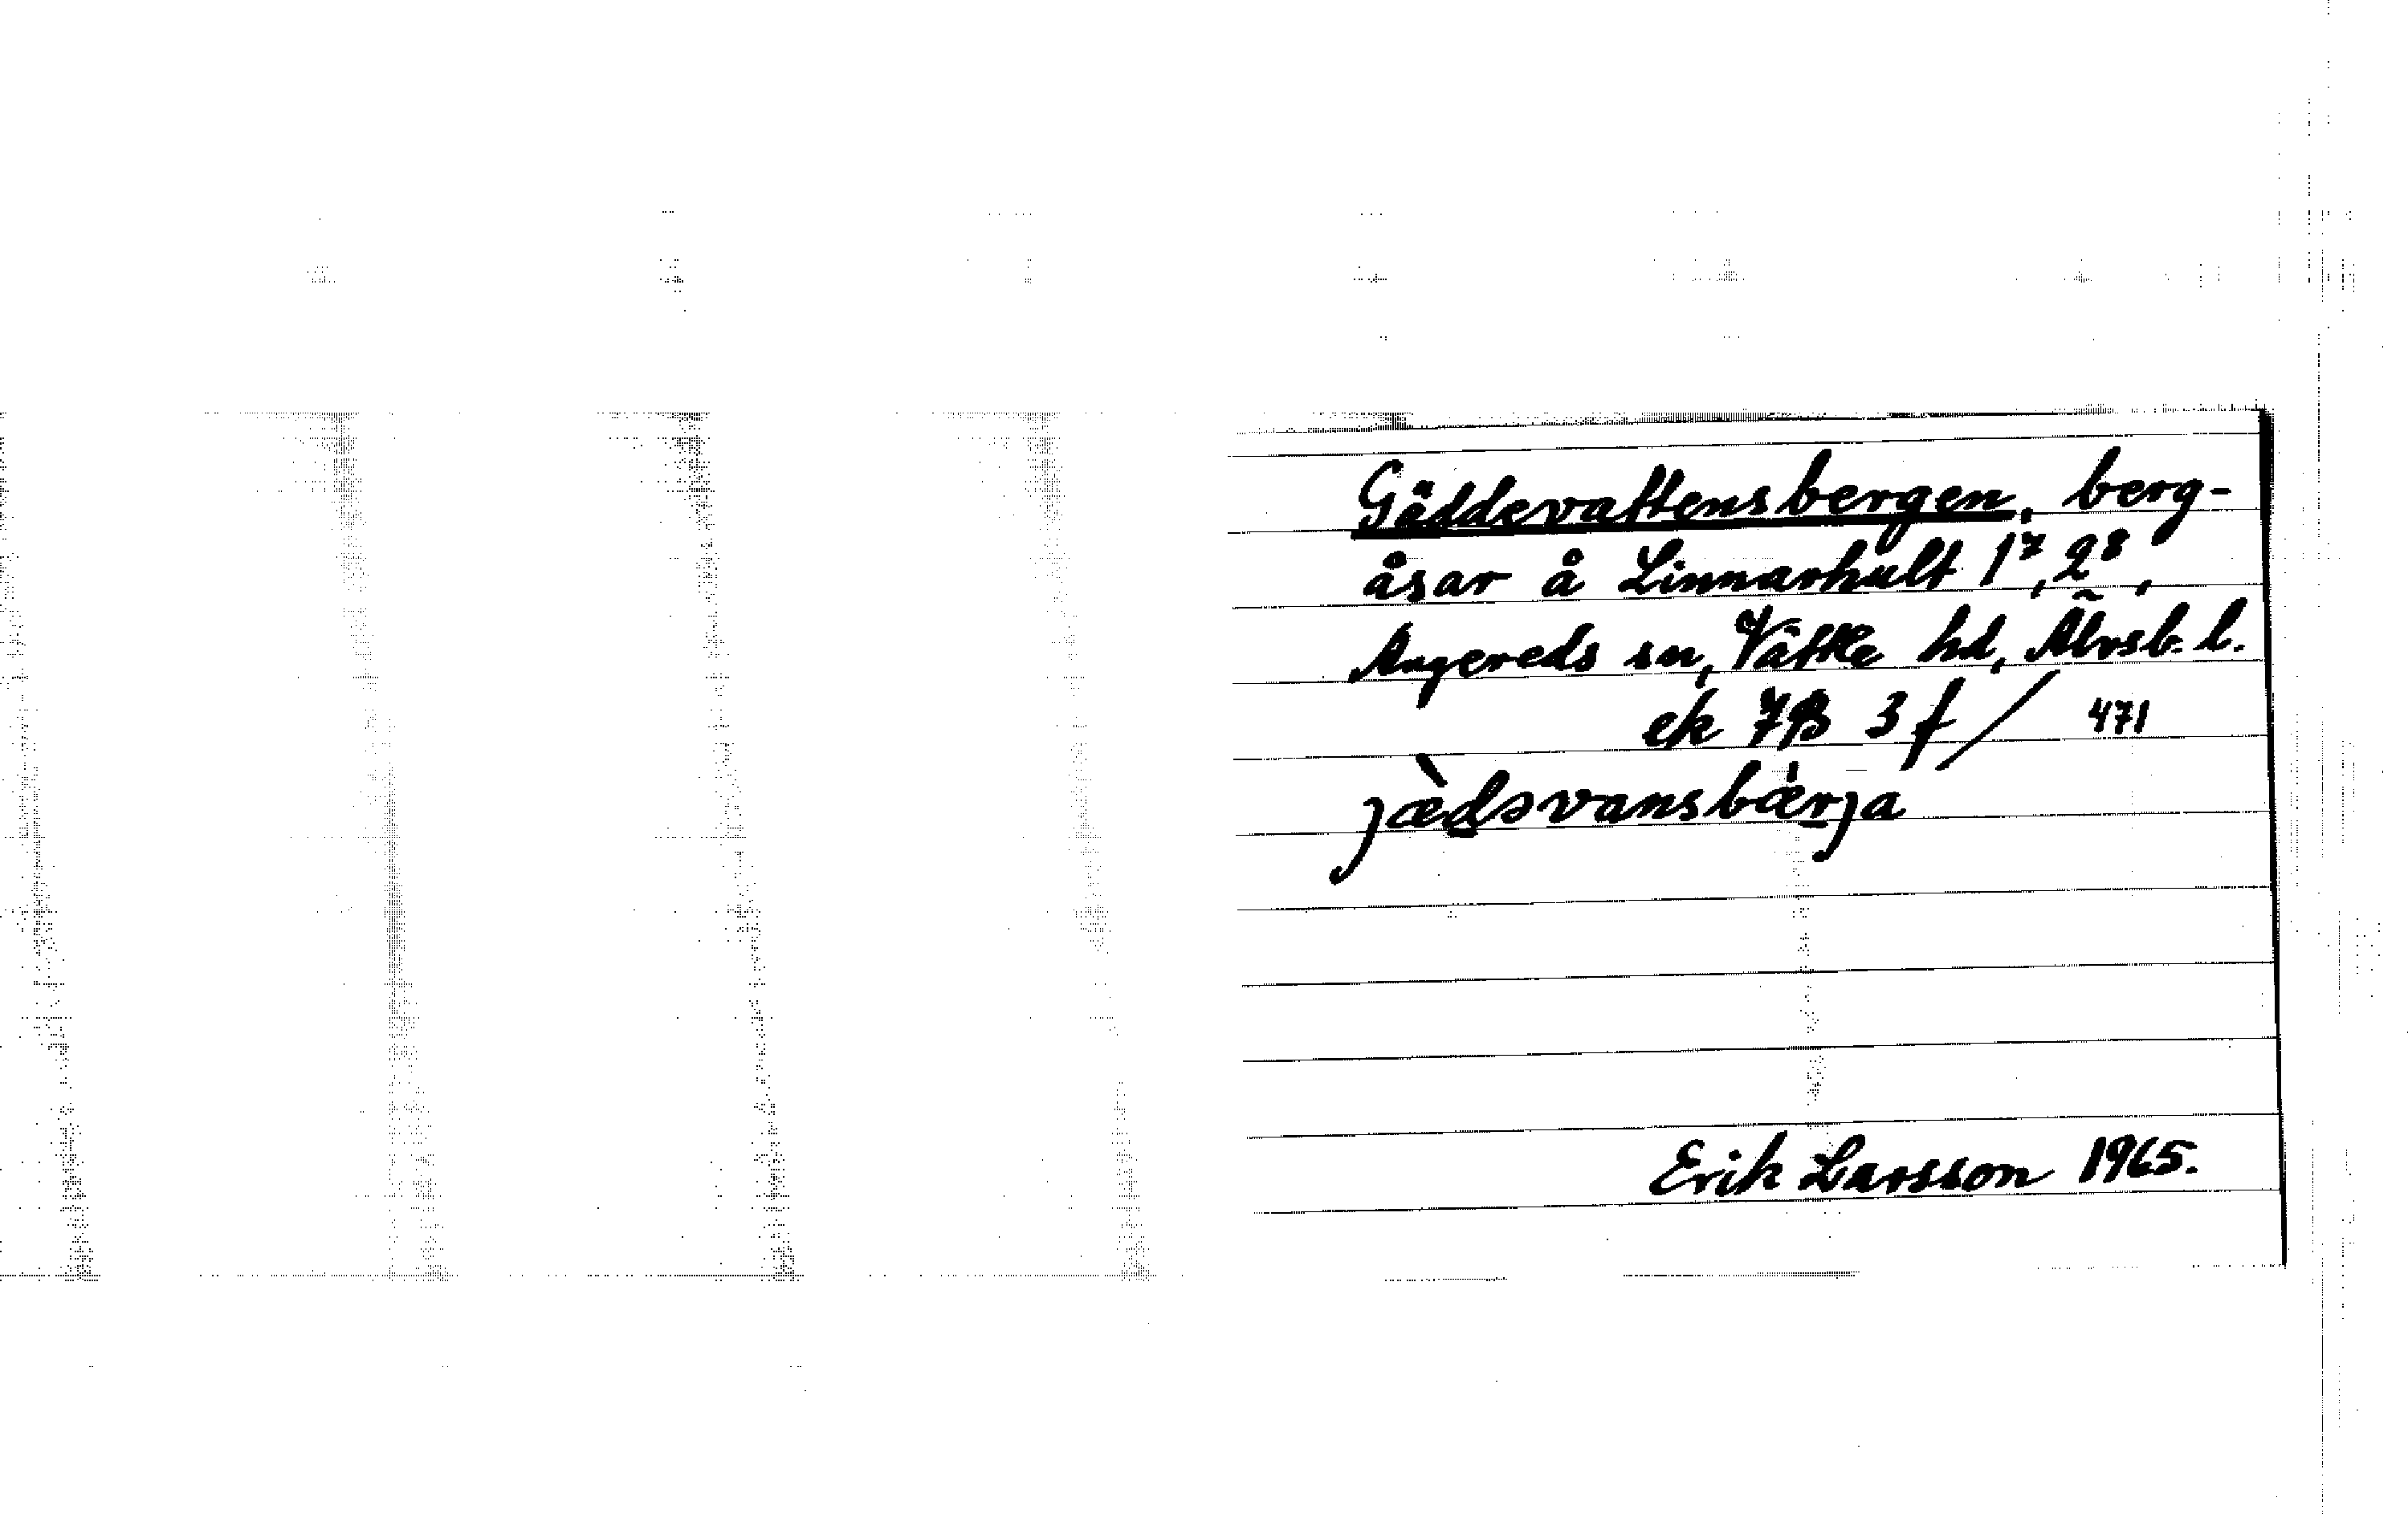 Gäddevattensbergen, berg-
åsar å Linnarhult 1⁷, 2⁸,
Angereds sn, Vättle hd, Älvsb. l.
ek 7B 3 f / 471
jæ̀dəvansbærja
Erik Larsson 1965.